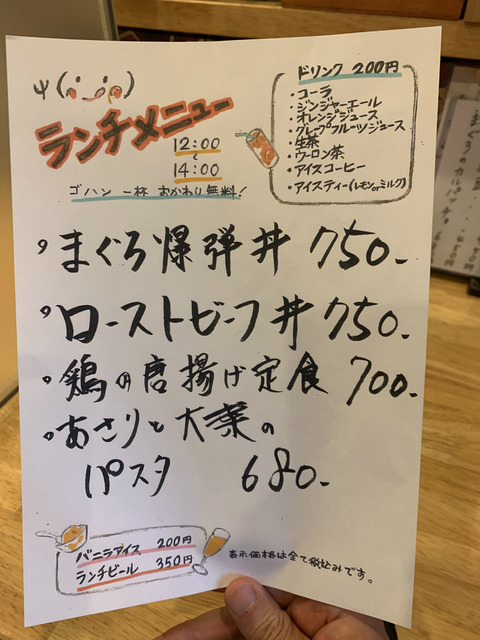 ランチメニュー
12:00
~
14:00
ゴハン 一杯 おかわり無料！
ドリンク 200円
・コーラ
・ジンジャーエール
・オレンジジュース
・グレープフルーツジュース
生茶
・ウーロン茶
・アイスコーヒー
・アイスティー(レモンorミルク)
まぐろ爆弾丼 750-
ローストビーフ丼 750-
・鶏の唐揚げ定食 700-
・あさりと大葉の
パスタ 680-
バニラアイス 200円
ランチビール 350円
表示価格は全て税込みです。
まぐろのカルパッチョ